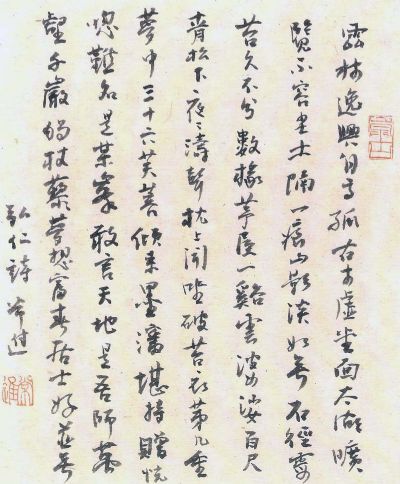 雲林逸興自高孤古木虛堂面太湖曠
覽不容塵土隔一痕山影淡如無石徑
苔久不分數椽茅屋一谿雲婆娑百尺
青松下夜〻濤聲枕上聞坐破苔衣第幾重
夢中三十六芙蓉傾來墨瀋堪持贈恍
惚難名是某峯敢言天地是吾師萬
壑千巖獨杖藜夢想富春居士好並無
弘仁詩